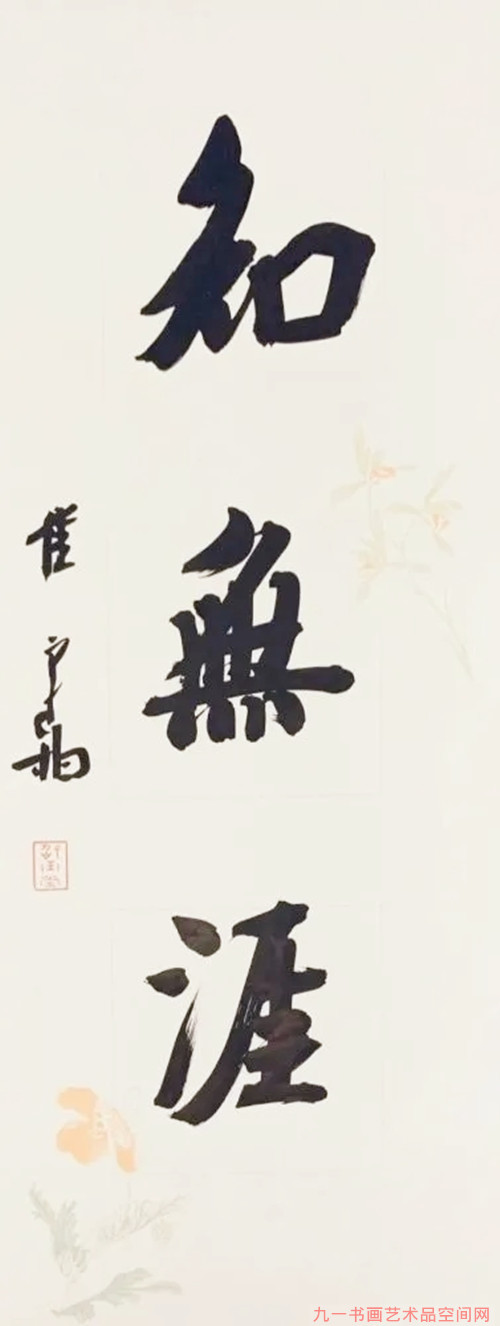 知無涯
九一书画艺术品空间网